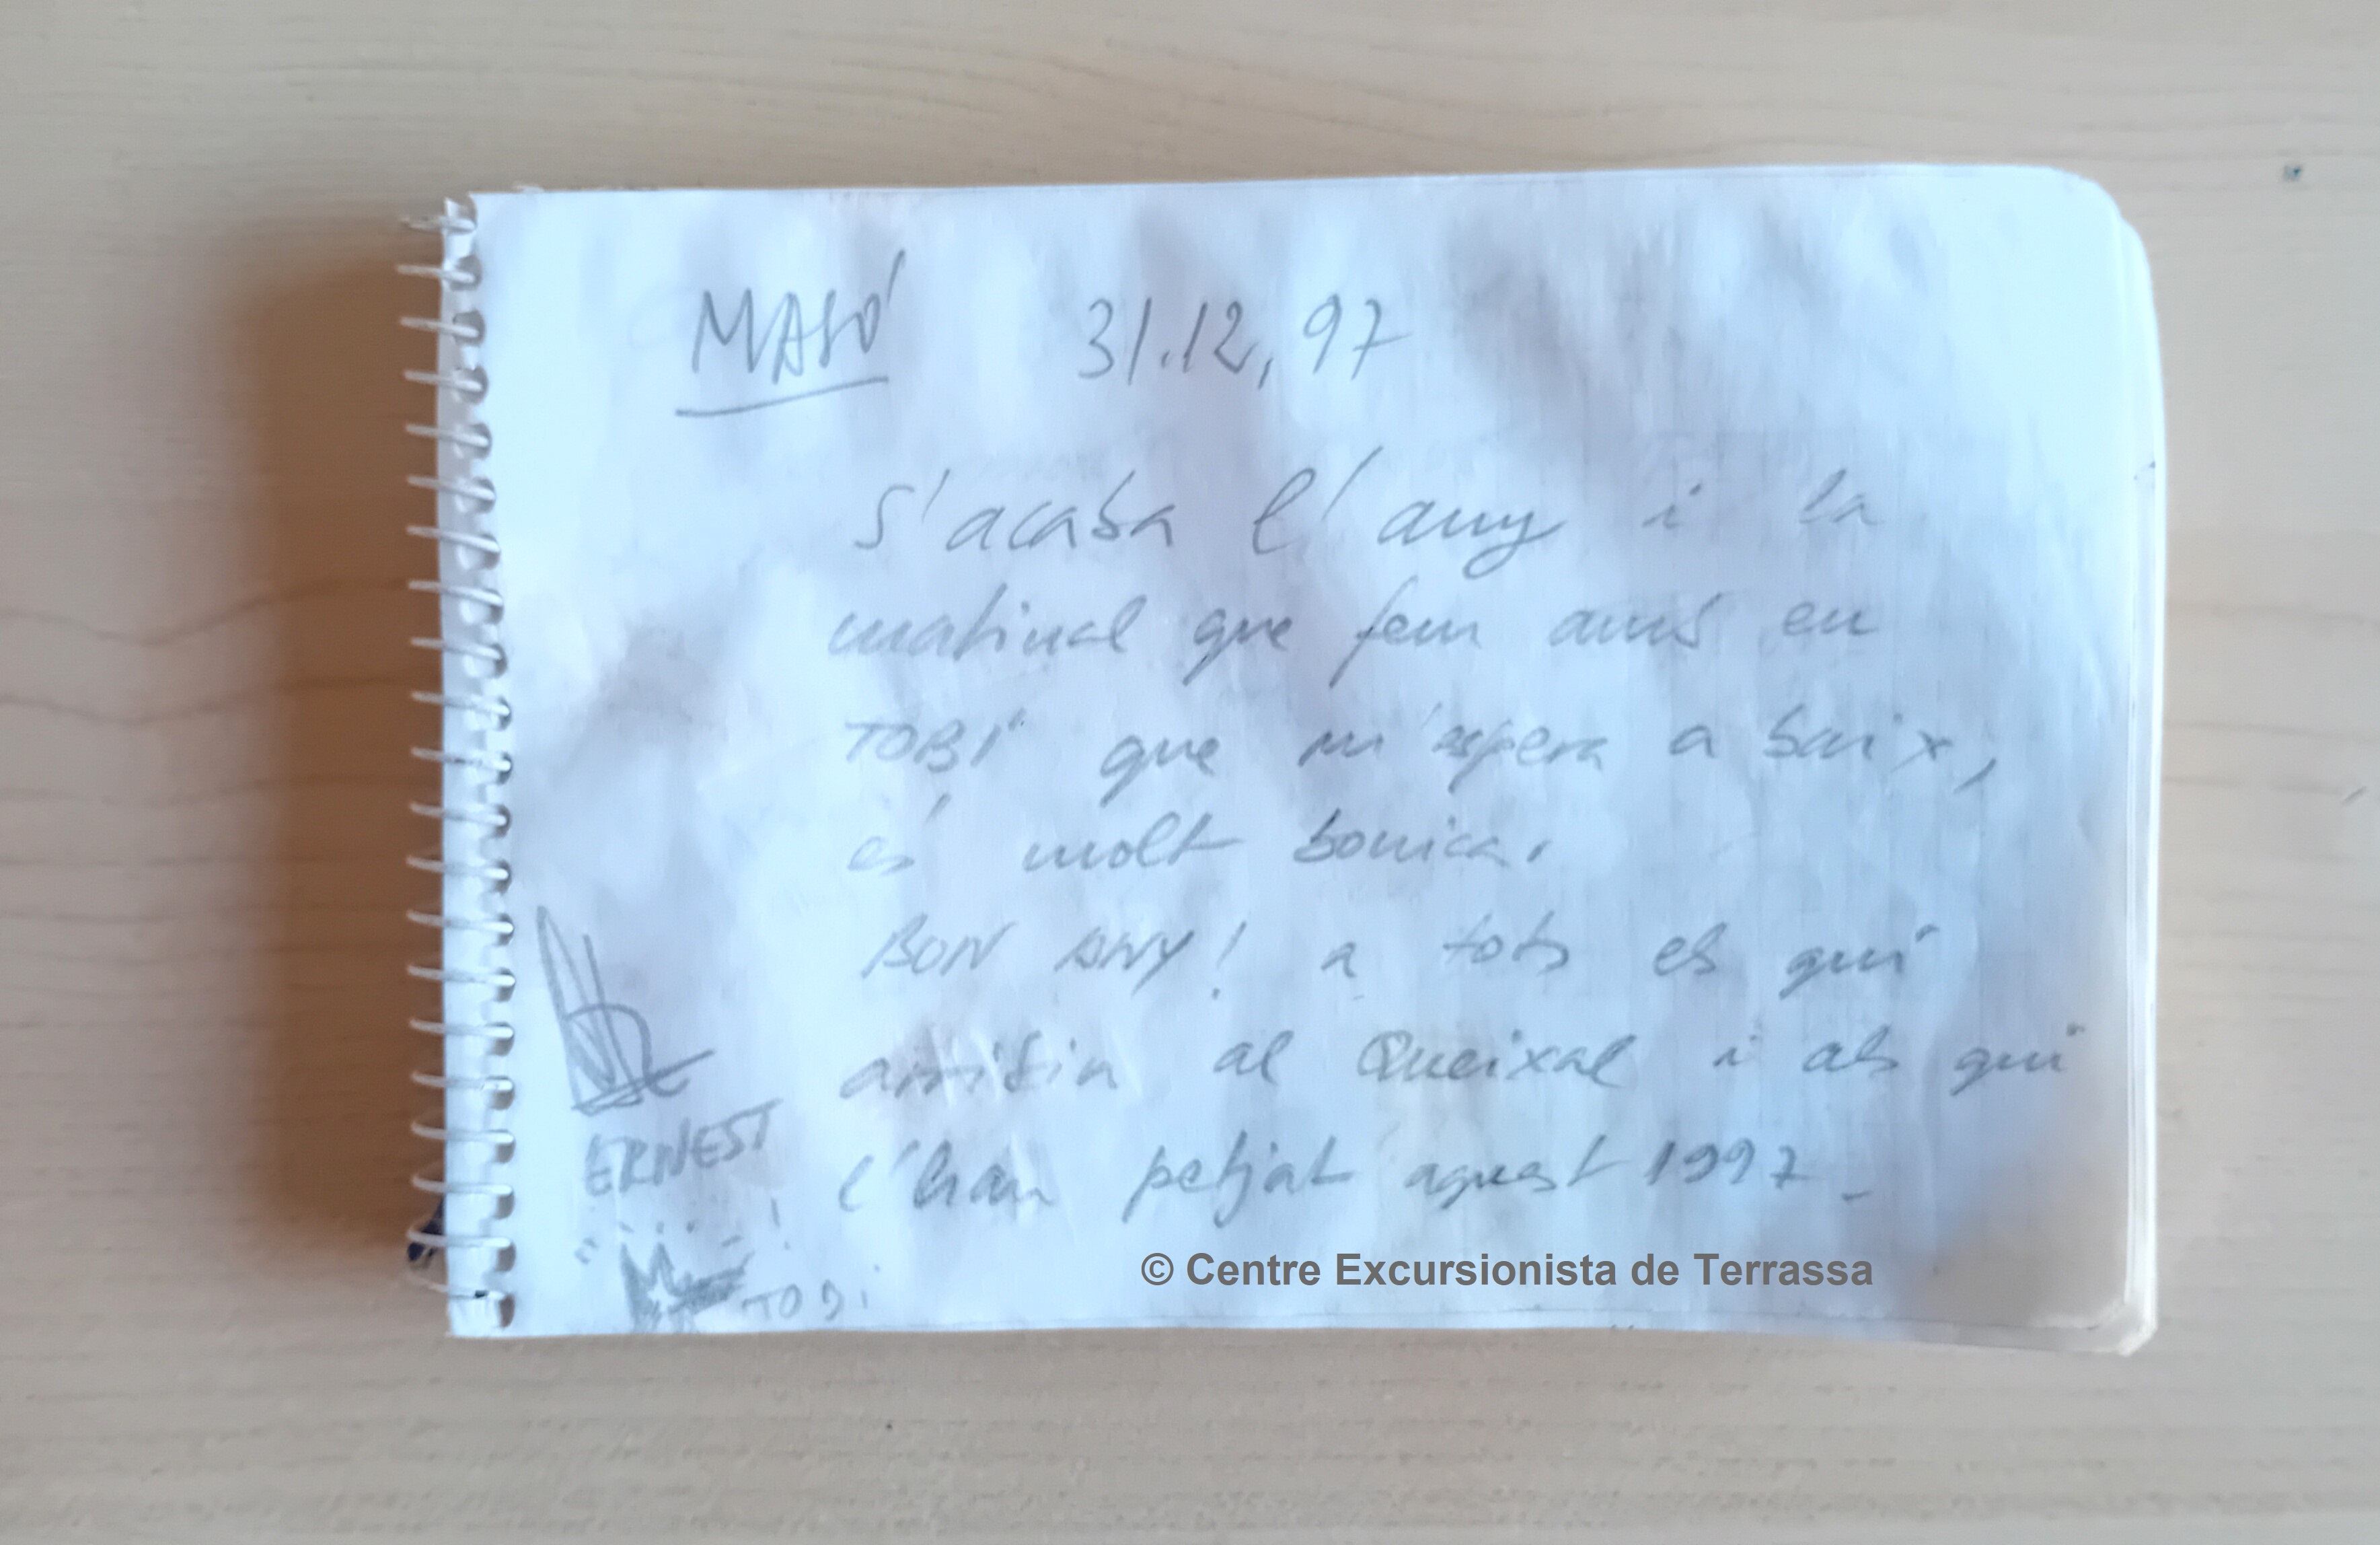 MASÓ 31.12,97
S'acaba l'any i la
matinal que fem amb en
TOBI que m'espera a baix,
és molt bonica.
BON ANY! a tots els qui
arribin al Queixal i als qui
l'han petjat aquest 1997_
ERNEST
TOBI
© Centre Excursionista de Terrassa